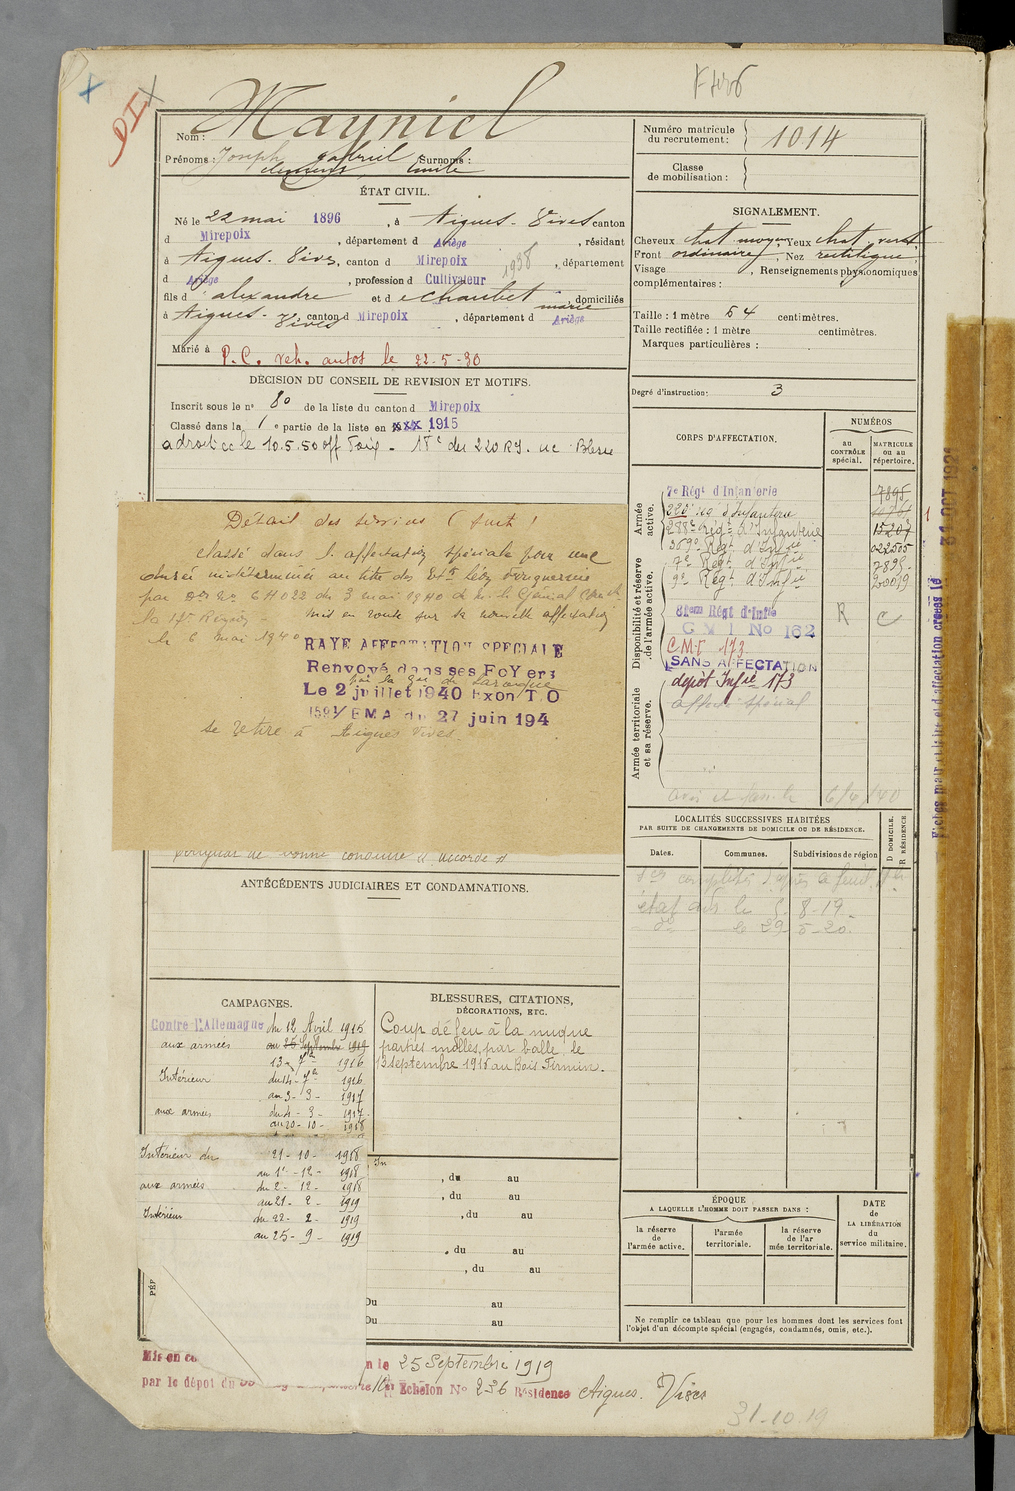 DI
Nom : Mayniel
Prénoms : Joseph gabriel Surnoms :
clement Emile
ÉTAT CIVIL.
Né le 22 mai 1896, à Aigues-Vives canton
d Mirepoix, département d Ariège, résidant
à Aigues-Vives, canton d Mirepoix, département
1938
d Ariège, profession d Cultivateur
fils d alexandre et d e chaubet marie domiciliés
à Aigues-Vives canton d Mirepoix, département d Ariège
Marié à
P.C. veh. autos le 22-5-30
DÉCISION DU CONSEIL DE REVISION ET MOTIFS.
Inscrit sous le n° 80 de la liste du canton d Mirepoix
Classé dans la 1e partie de la liste en xxx 1915
a droit cc le 10.5.50 off Foix - du 220 RI. uc Blessé
Détail des services (suite)
classé dans l'affectation spéciale pour une
durée indéterminée au titre des
par 6H022 du 3 mai 1940 de Mr le Général
la 17e Région mis en route sur sa nouvelle affectation
le 6 mai 1940
RAYE AFFECTATION SPECIALE
Renvoyé dans ses FoYers
Le 2 juillet 1940 Exon T O
1591/EMA du 27 juin 194
se retire à Aigues Vives
de bonne conduite a accordé
ANTÉCÉDENTS JUDICIAIRES ET CONDAMNATIONS.
CAMPAGNES.
Contre l'Allemagne du 12 Avril 1915
aux armées au 25 Septembre 1919
13 - 7bre 1916
Intérieur du 14 - 7bre 1916
au 3 - 3 - 1917
aux armées du 4 - 3 - 1917
au 20 - 10 - 1918
Intérieur du 21 - 10 - 1918
au 1er - 12 - 1918
aux armées du 2 - 12 - 1918
au 21 - 2 - 1919
Intérieur du 22 - 2 - 1919
au 25 - 9 - 1919
BLESSURES, CITATIONS,
DÉCORATIONS, ETC.
Coup de feu à la nuque
parties molles, par balle, le
13 septembre 1916 au Bois Firmin.
In
, du au
, du au
, du au
, du au
, du au
Du au
Du au
PÉR
Mis en co n le 25 Septembre 1919
par le dépôt du Echelon N° 236 Résidence Aigues. Vives
31-10-19
Numéro matricule
du recrutement : 1014
Classe
de mobilisation :
SIGNALEMENT.
Cheveux chat moyen Yeux chat vert
Front ordinaire, Nez rectiligne
Visage , Renseignements physionomiques
complémentaires :
Taille : 1 mètre 54 centimètres.
Taille rectifiée : 1 mètre centimètres.
Marques particulières :
Degré d'instruction : 3
CORPS D'AFFECTATION.
NUMÉROS
au
CONTRÔLE
spécial.
MATRICULE
ou au
répertoire.
Armée
active.
Disponibilité et réserve
de l'armée active.
Armée territoriale
et sa réserve.
7e Régt d'Infanterie 7895
220e Rég d'Infanterie
288e Régt d'Infanterie 15207
369e Régt d'Infie 022505
7e Régt d'Infie 7895
9e Régt d'Infie 20019
81em Régt d'Infie R C
G M I No 162
C.M.I 173
SANS AFFECTATION
dépôt Infie 173
Affecté spécial
6/4/40
LOCALITÉS SUCCESSIVES HABITÉES
PAR SUITE DE CHANGEMENTS DE DOMICILE OU DE RÉSIDENCE.
Dates.
Communes.
Subdivisions de région
D DOMICILE.
R RÉSIDENCE
le 5-8-19
do le 29-5-20.
ÉPOQUE
A LAQUELLE L'HOMME DOIT PASSER DANS :
la réserve
de
l'armée active.
l'armée
territoriale.
la réserve
de l'ar
mée territoriale.
DATE
de
LA LIBÉRATION
du
service militaire.
Ne remplir ce tableau que pour les hommes dont les services font
l'objet d'un décompte spécial (engagés, condamnés, omis, etc.).
31 OCT 192
Fiches matricules et d'affectation créées le